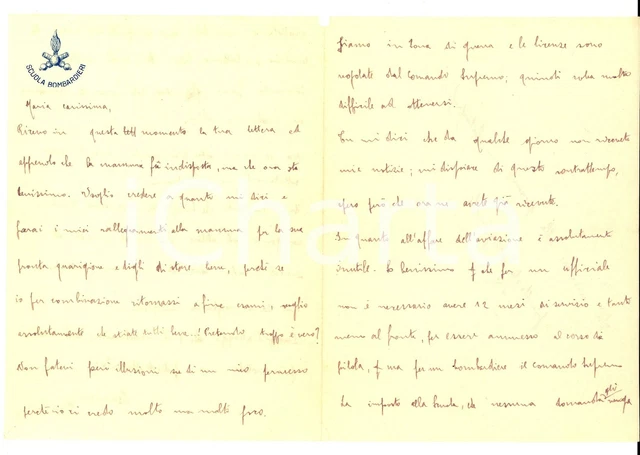 SCUOLA BOMBARDIERI
Maria carissima,
Ricevo in questo momento la tua lettera ed
apprendo che la mamma fu indisposta, ma che ora sta
benissimo. Voglio credere a quanto mi dici e
farai i miei rallegramenti alla mamma per la sua
pronta guarigione e digli di stare bene, perché se
io per combinazione ritornassi a fine esami, voglio
assolutamente che stiate tutti bene..! Pretendo troppo è vero?
Non farti però illusioni su di un mio permesso
perché io ci credo molto ma molto poco.
Siamo in zona di guerra e le licenze sono
regolate dal Comando Supremo; quindi cosa molto
difficile ad ottenersi.
Tu mi dici che da qualche giorno non ricevete
mie notizie; mi dispiace di questo contrattempo,
spero però che ora ne avrete già ricevute.
In quanto all'affare dell'aviazione è assolutamente
inutile. So benissimo che per un ufficiale
non è necessario avere 12 mesi di servizio e tanto
meno al fronte, per essere ammesso al corso di
pilota, ma per un bombardiere il comando supremo
ha imposto alla Scuola, che nessuna domanda
iCharta